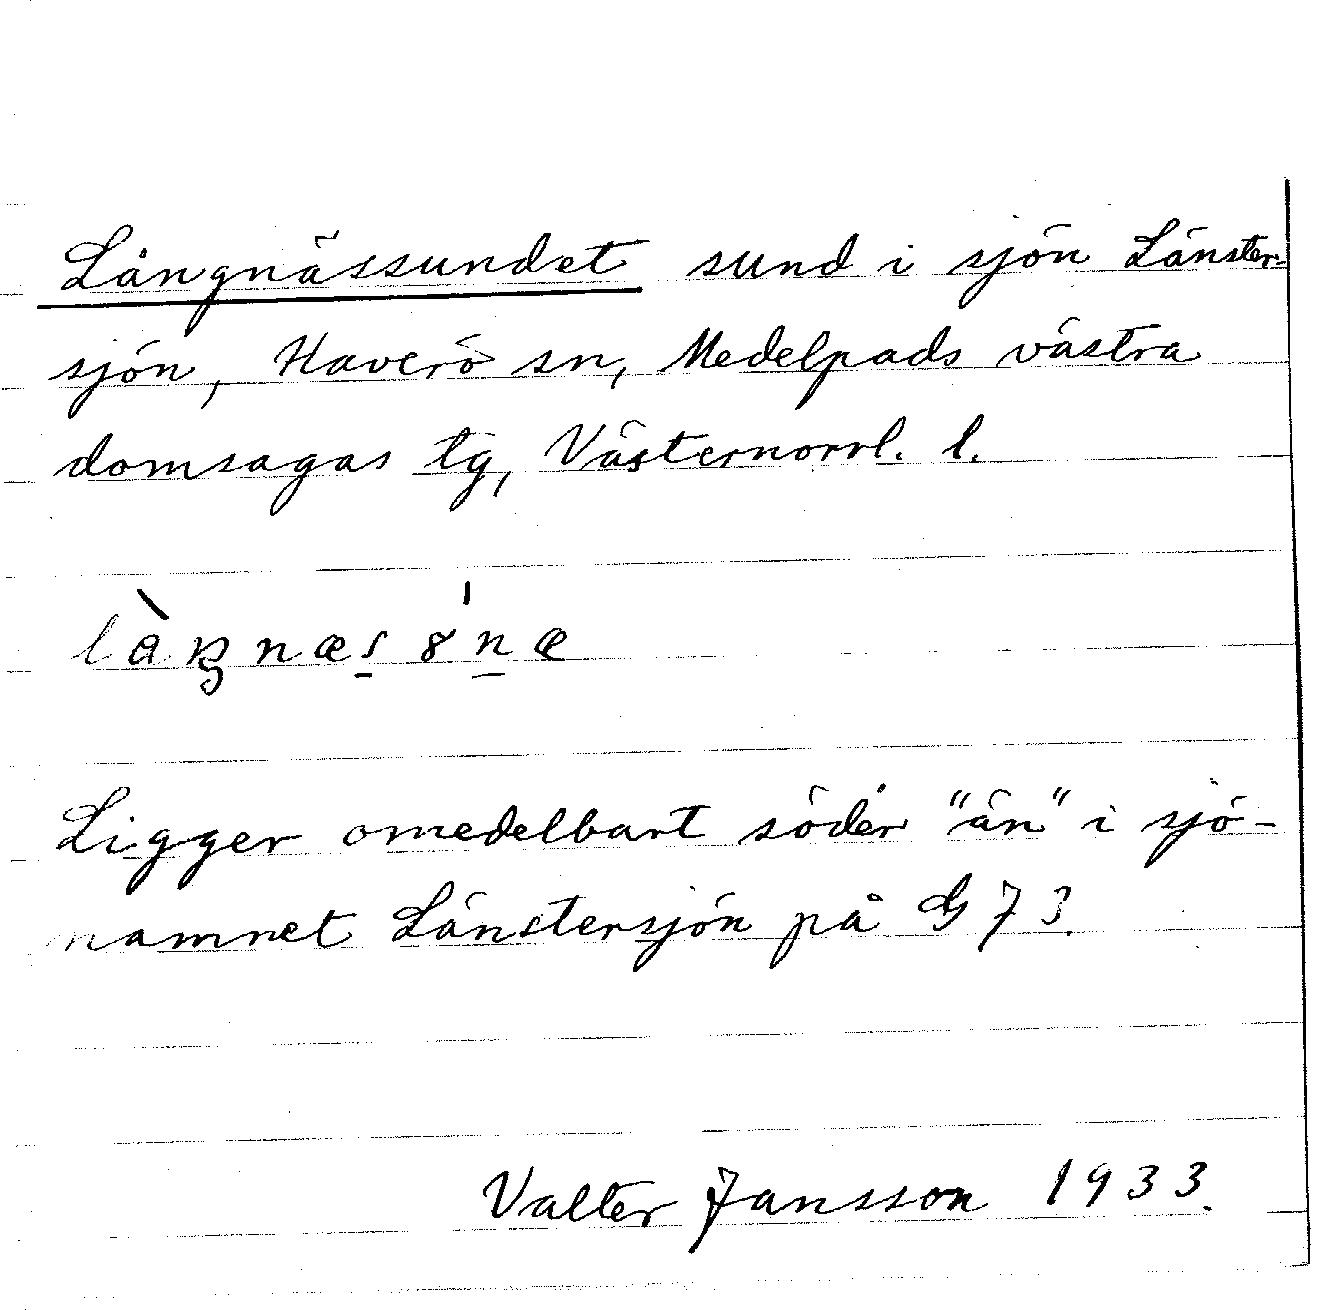 Långnässundet sund i sjön Länster-
sjön, Haverö sn, Medelpads västra
domsagas tg, Västernorrl. l.
Ligger omedelbart söder "än" i sjö-
namnet Länstersjön på G 73.
Valter Jansson 1933.